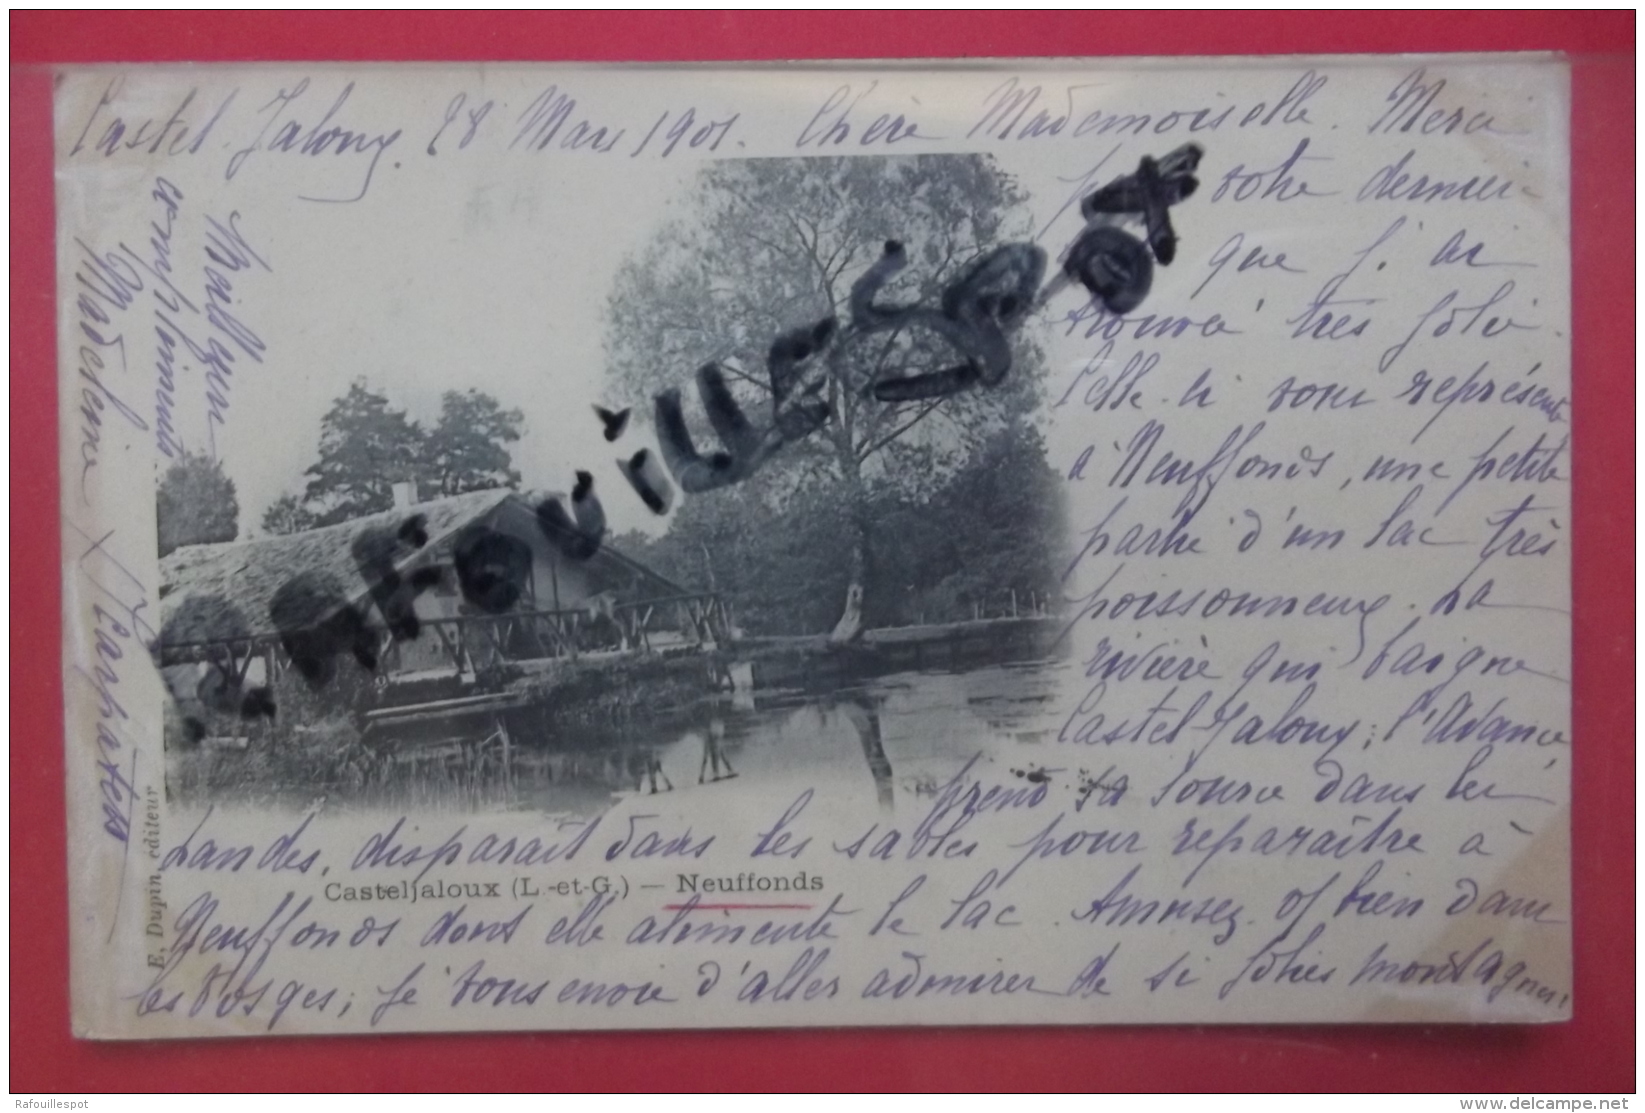 Castel Jaloux. 28 Mars 1901. Chère Mademoiselle. Merci
votre dernière
que j'ai
trouvée très jolie.
Celle-ci vous représente
à Neuffonds, une petite
partie d'un lac très
poissonneux. La
rivière qui baigne
Castel-Jaloux; l'Avance,
prend sa source dans les
Landes, disparaît dans les sables pour reparaître à
Casteljaloux (L.-et-G.) — Neuffonds
Neuffonds dont elle alimente le lac. Amusez bien dans
les Vosges; je vous envie d'aller admirer de si jolies montagnes!
Meilleurs
compliments
Madeleine
E. Dupin, editeur
RAFOUILLESPOT
Rafouillespot
www.delcampe.net